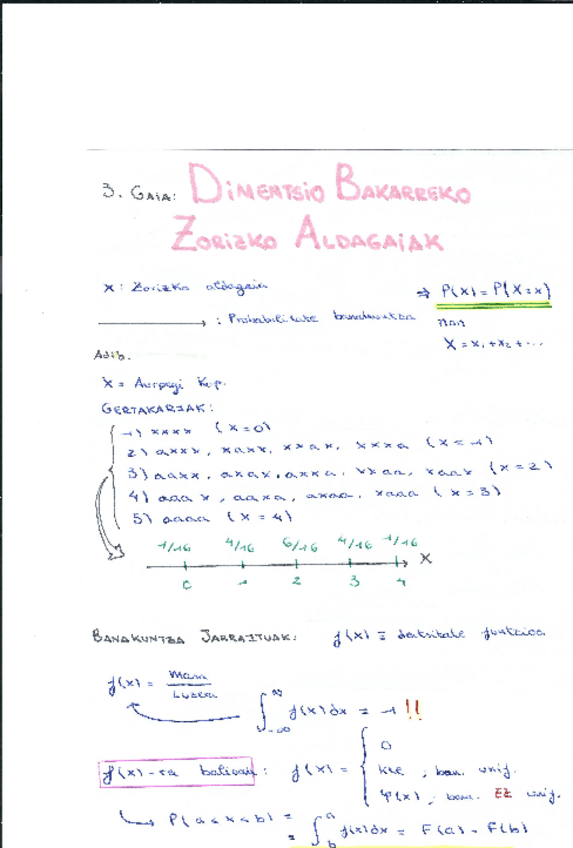 3. GAIA: DIMENTSIO BAKARREKO
ZORIZKO ALDAGAIAK
X: Zorizko aldagaia ⇒ P(x) = P(X=x)
⟶ : Probabilitate banakuntza non
X = x₁ + x₂ + ...
Adib.
X = Aurpegi Kop.
GERTAKARIAK:
1) xxxx (x=0)
2) axxx, xaxx, xxax, xxxa (x=1)
3) aaxx, axax, axxa, xxaa, xaax (x=2)
4) aaax, aaxa, axaa, xaaa (x=3)
5) aaaa (x=4)
1/16 4/16 6/16 4/16 1/16
0 1 2 3 4 X
BANAKUNTZA JARRAITUAK: f(x) ≡ dentsitate funtzioa
f(x) = Masa / Luzera
∫_{-∞}^{∞} f(x)dx = 1 !!
f(x)-ra balioak: f(x) = {
0
kte, ban. unif.
φ(x), ban. EZ unif.
P(a<x<b) =
= ∫_b^a f(x)dx = F(a) - F(b)